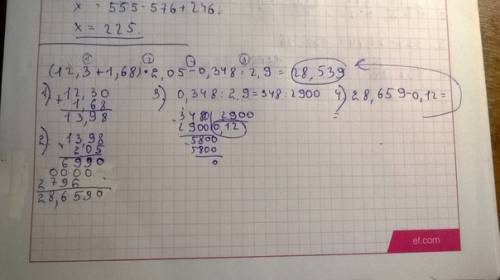 x = 555 - 576 + 246.
x = 225.
① ② ④ ③
(12,3+1,68)·2,05-0,348:2,9=28,539
1) 12,30
+ 1,68
13,98
2) 13,98
× 2,05
6990
0000
2796
28,6590
3) 0,348:2,9=348:2900
3480 | 2900
2900 0,12
5800
5800
0
4) 28,659-0,12=
=
ef.com